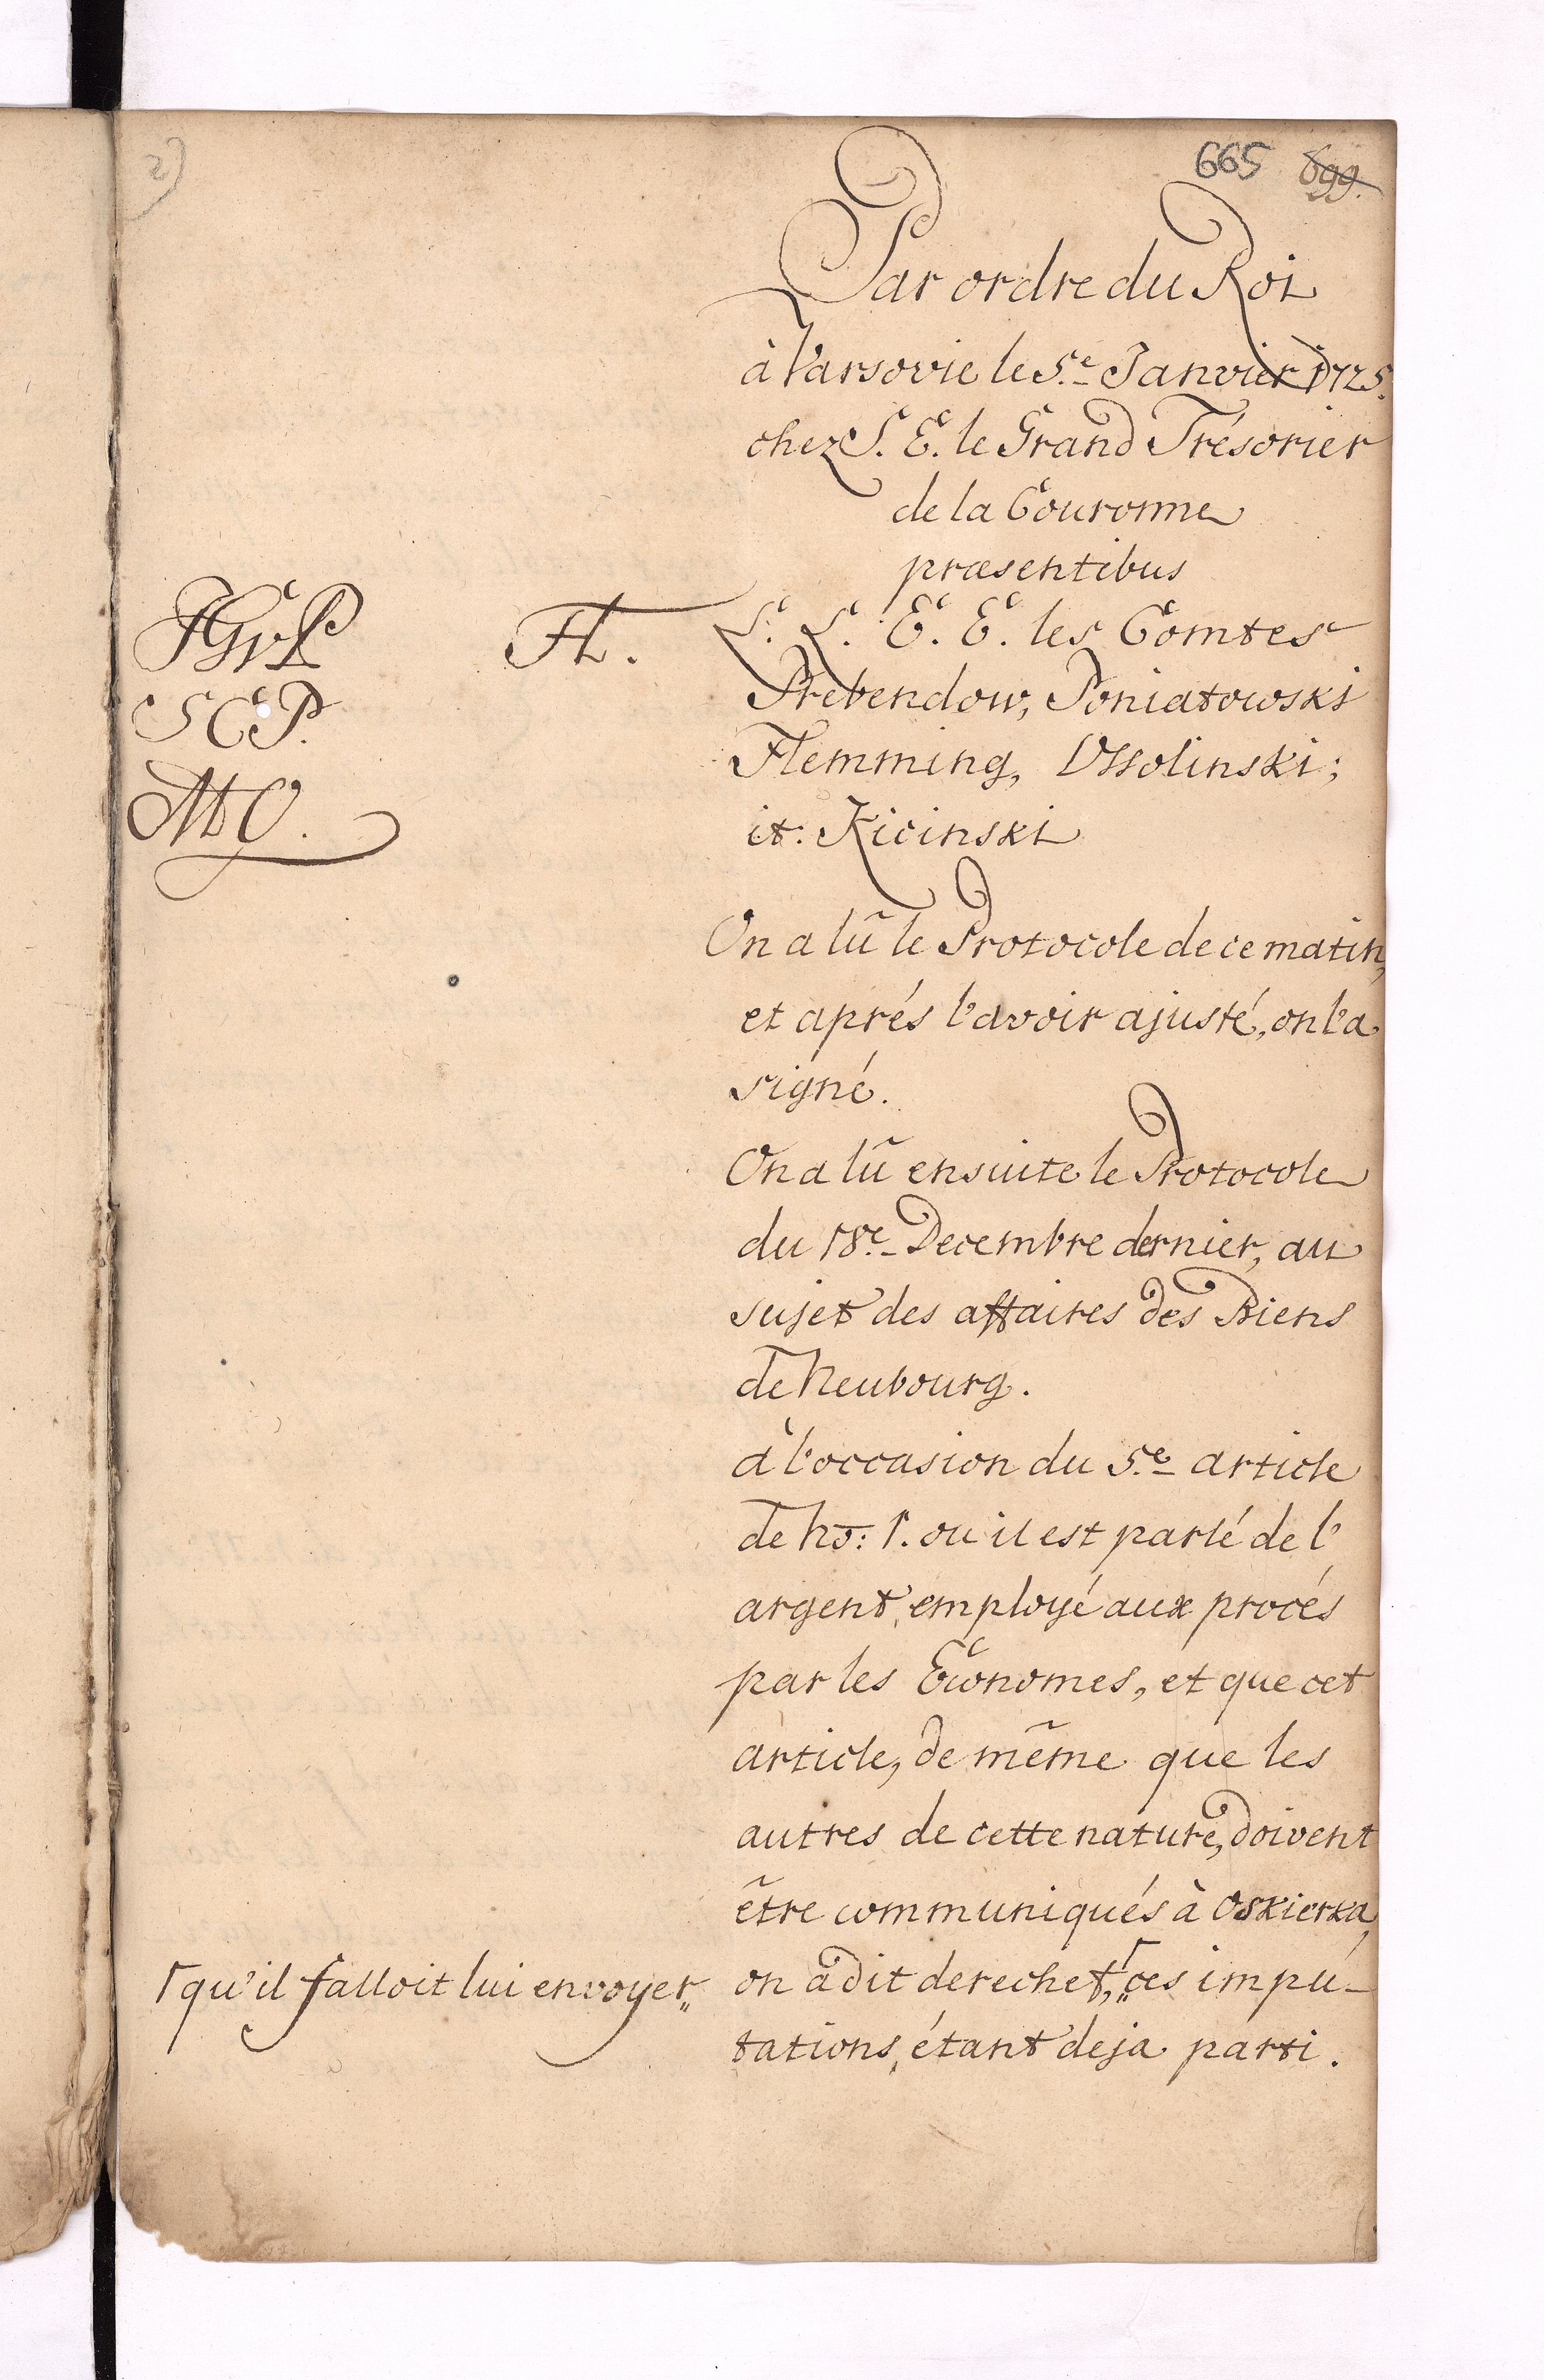 2)
665 699.
Par ordre du Roi
à Varsovie le 5.e Janvier 1725.
chez S. E. le Grand Trésorier
de la Couronne
præsentibus
L. L. E. E. les Comtes
Prebendow, Poniatowski
Flemming, Ossolinski;
it. Kicinski
JGvP
Fl.
SCP.
MO.
On a lû le Protocole de ce matin,
et aprés l'avoir ajusté, on l'a
signé.
On a lû ensuite le Protocole
du 18.e Decembre dernier, au
sujet des affaires des Biens
de Neubourg.
à l'occasion du 5.e article
de No: 1. ou il est parlé de l'
argent, employé aux procés
par les Économes, et que cet
article, de même que les
autres de cette nature, doivent
être communiqués à Oskierka,
on a dit derechef, ⌈ ces impu-
⌈ qu'il falloit lui envoyer
tations, étant deja parti.